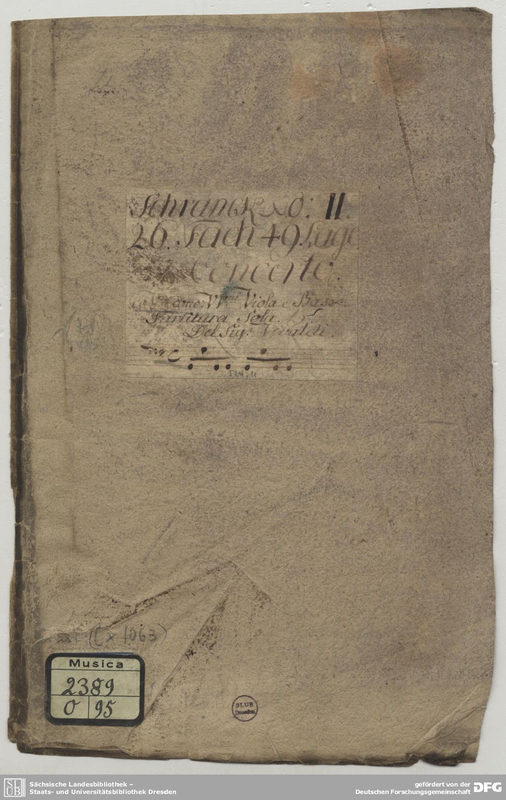 Schranck No: II.
26. Fach 49. Lage
Concerto.
co Viola e Basso
Partitura Sola.
Del Sigr. Vivaldi.
(Cx 1063)
Musica
2389
O 95
SLUB
Dresden
SLUB
Sächsische Landesbibliothek –
Staats- und Universitätsbibliothek Dresden
gefördert von der
Deutschen Forschungsgemeinschaft
DFG